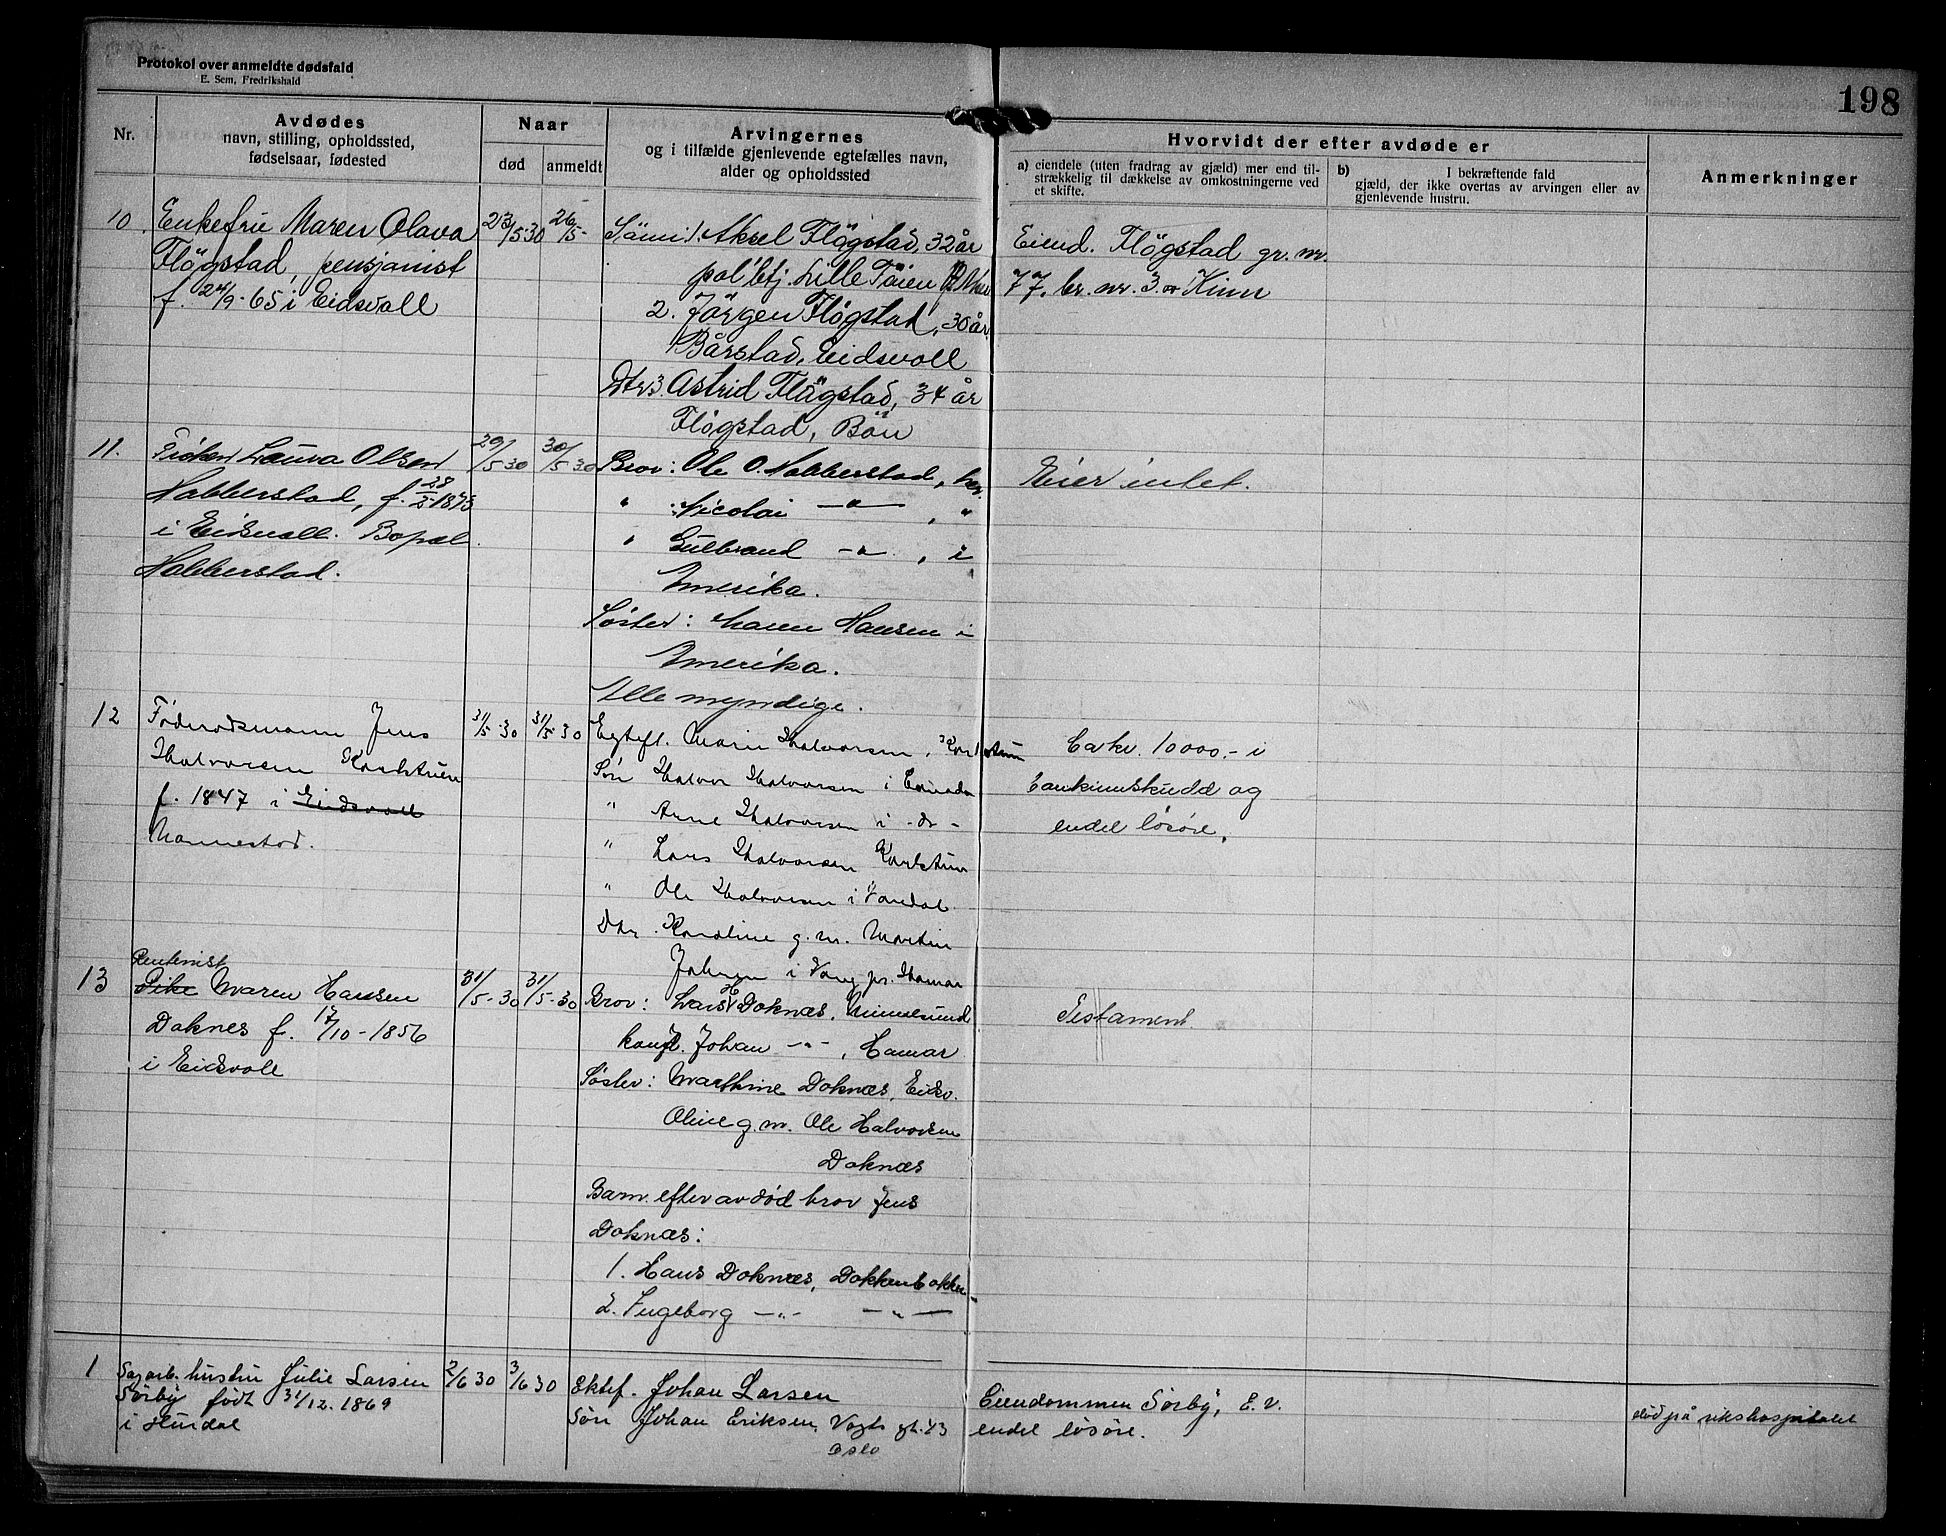 Protokol over anmeldte dødsfald
E. Sem, Fredrikshald
198
Nr.
Avdødes
navn, stilling, opholdssted,
fødselsaar, fødested
Naar
død
anmeldt
Arvingernes
og i tilfælde gjenlevende egtefælles navn,
alder og opholdssted
Hvorvidt der efter avdøde er
a) eiendele (uten fradrag av gjæld) mer end til-
strækkelig til dækkelse av omkostningerne ved
et skifte.
b) I bekræftende fald
gjæld, der ikke overtas av arvingen eller av
gjenlevende hustru.
Anmerkninger
10. Enkefru Maren Olava
Flögstad, pensjonist
f. 24/9-65 i Eidsvoll
23/5-30
26/5-
1. Aksel Flögstad, 32 år
pol'btj. Lille Töien
2. Jörgen Flögstad, 30 år
Bårstad, Eidsvoll
Dtr 3. Astrid Flögstad, 34 år
Flögstad, Bön
Eiend. Flögstad gr. nr.
77, br. nr. 3
11. Frøken Laura Olsen
Habberstad, f. 28/2-1873
i Eidsvoll. Bopæl
Habberstad.
29/5 30
30/5 30
Bror: Ole O. Habberstad, her.
" Nicolai —"— , "
" Gulbrand —"— , i
Amerika.
Søster: Maren Hansen i
Amerika.
Alle myndige.
Eier intet.
12 Føderådsmann Jens
Halvorsen Karlstuen
f. 1847 i Eidsvoll
Nannestad.
31/5-30
31/5 30
Egtef. Marie Halvorsen, Karlstuen
Søn Halvor Halvorsen i
" Arne Halvorsen i -do-
" Lars Halvorsen Karlstuen
" Ole Halvorsen i
Dtr. Karoline g. m. Martin
Johnsen i Vang pr. Hamar
Ca kr. 10000.- i
bankinnskudd og
endel løsøre.
13 Rentenist
Pike Maren Hansen
Doknes f. 17/10-1856
i Eidsvoll
31/5-30
31/5-30
Bror: Lars H Doknæs, Minnesund
Johan -"- , Hamar
Søster: Marthine Doknæs, Eidsv.
Oline g. m. Ole Halvorsen
Doknæs
Barn efter avdød bror Jens
Doknæs:
1. Hans Doknæs, Dokkenbakken
2. Ingeborg —"— —"—
Testament.
1 Sagarb. hustru Julie Larsen
Sørby født 31/12.1869
i Hurdal
2/6 30
3/6 30
Ektef. Johan Larsen
Søn Johan Eriksen, Vogts gt. 43
Oslo
Eiendommen Sørby, E. V.
endel løsøre.
død på rikshospitalet